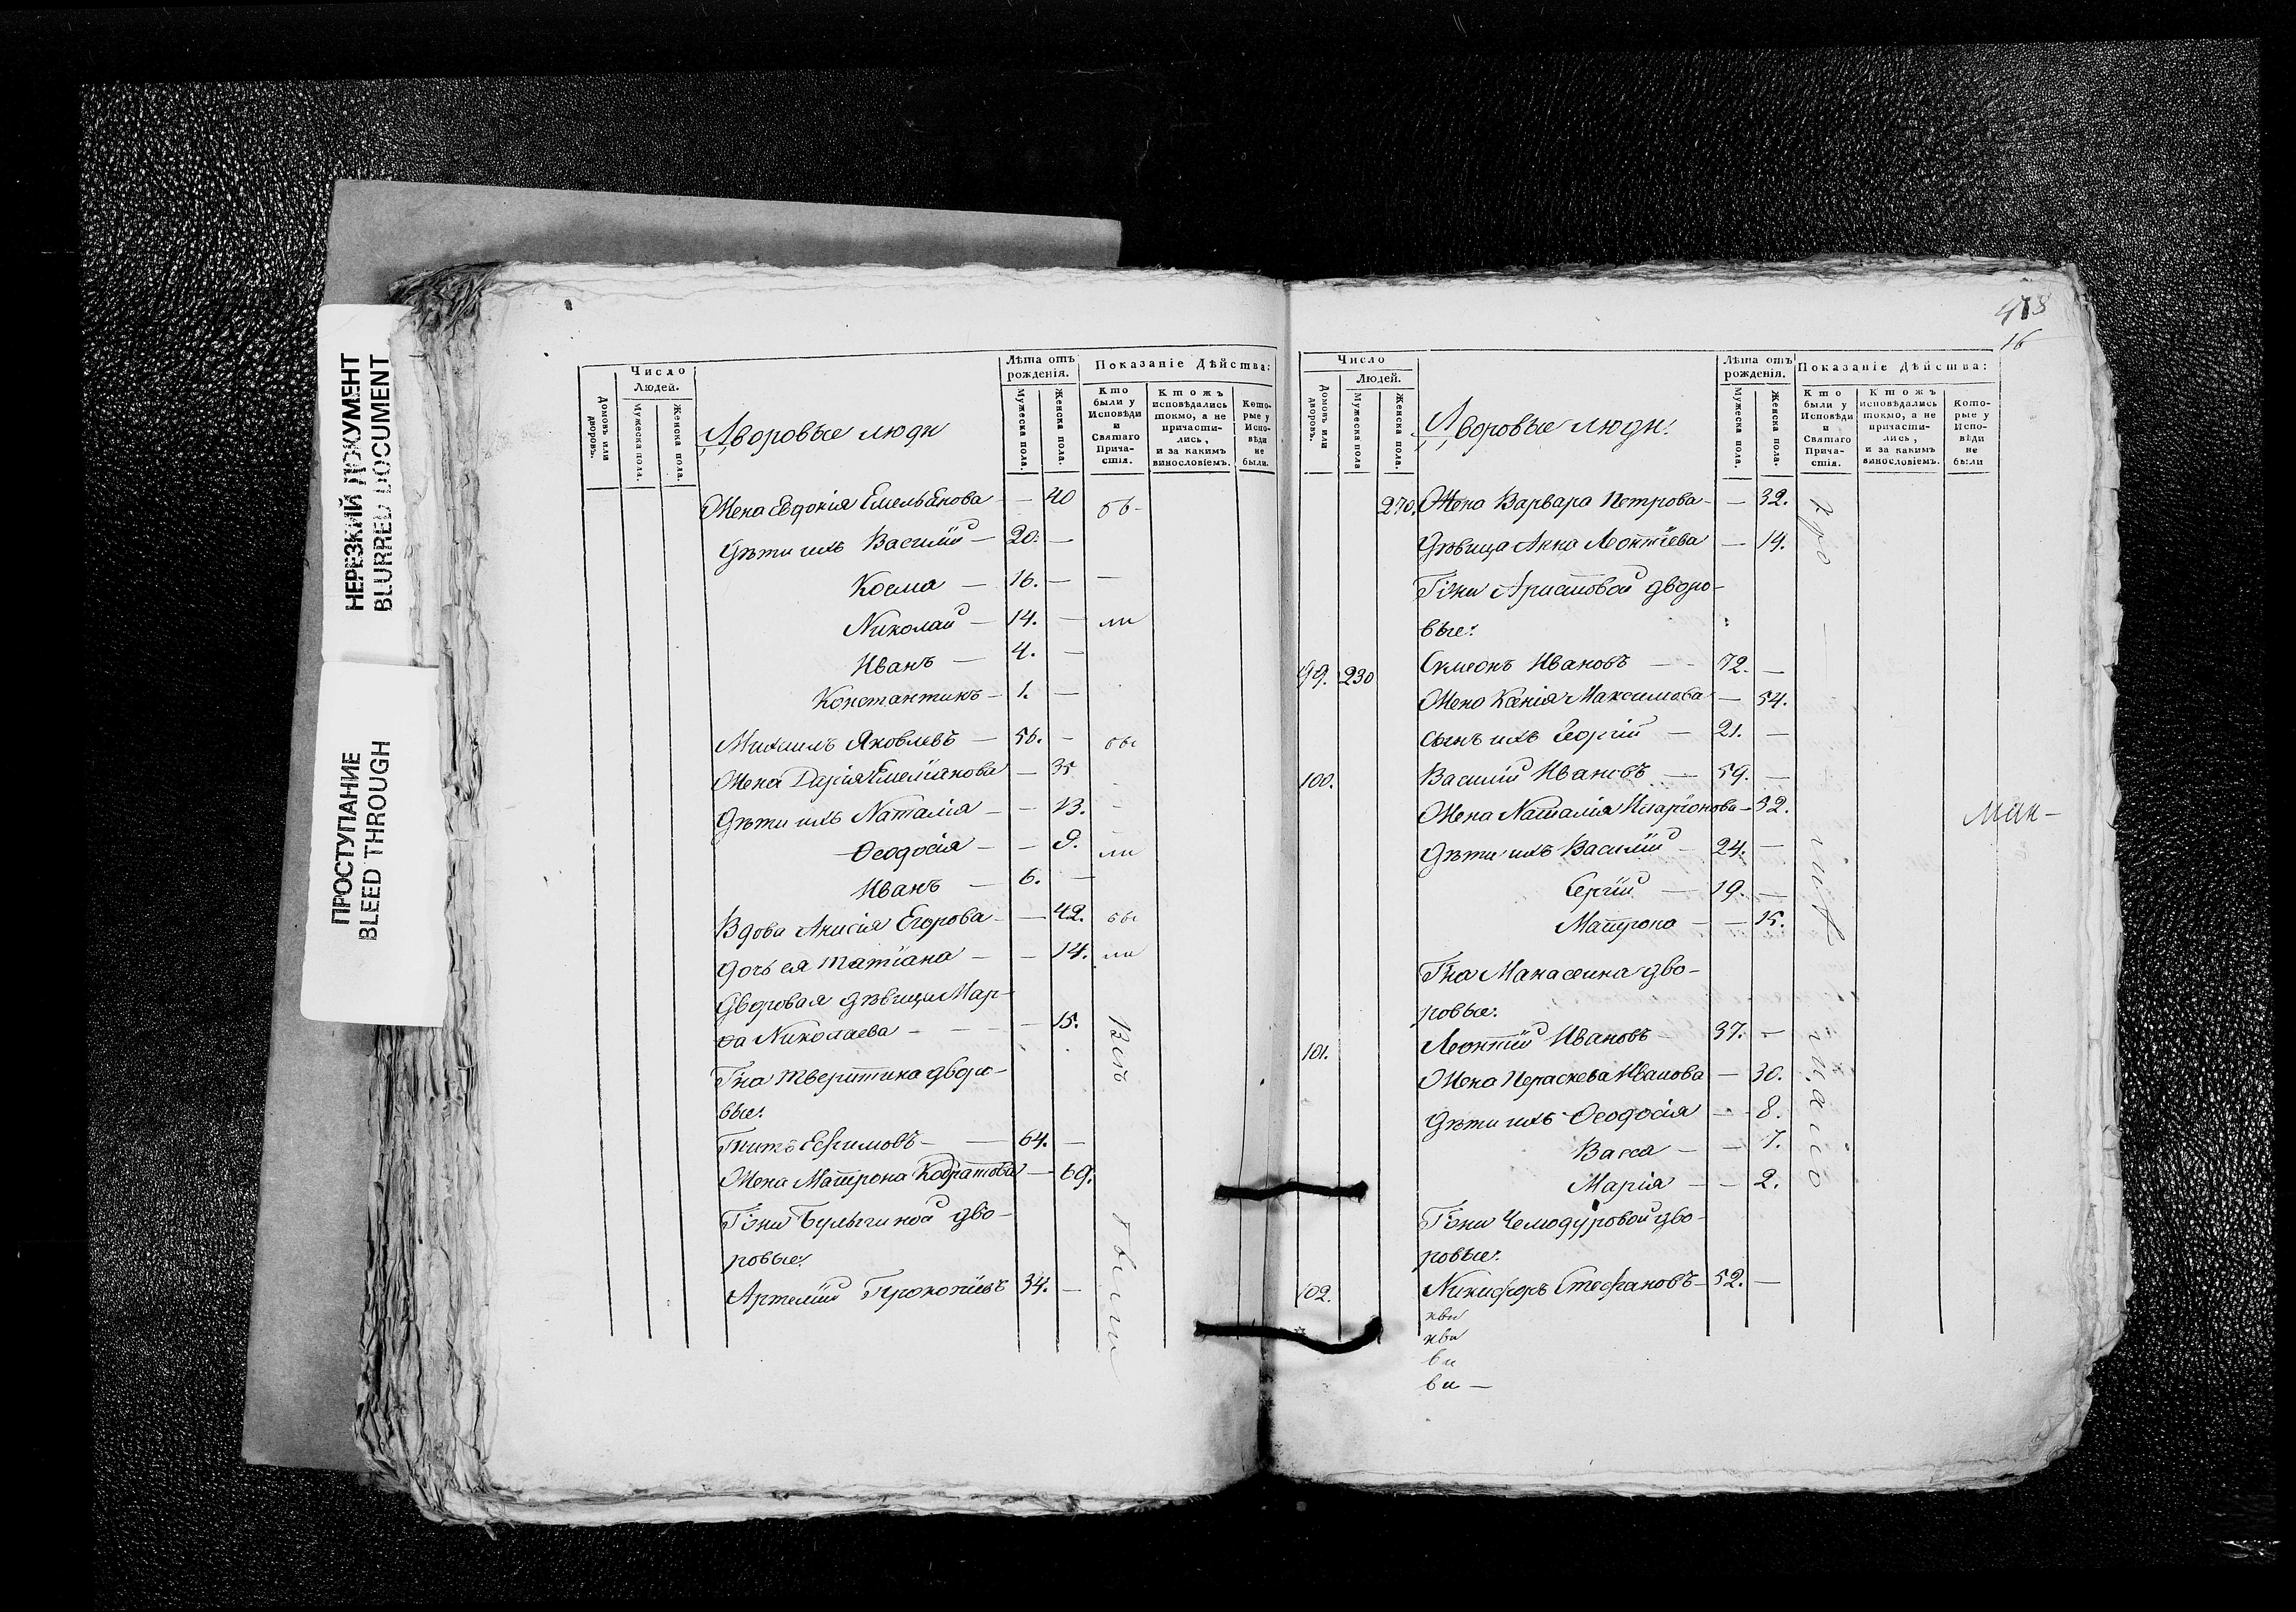 НЕРЕЗКИЙ ДОКУМЕНТ
BLURRED DOCUMENT
ПРОСТУПАНИЕ
BLEED THROUGH
Число
Людей.
Домовъ или дворовъ.
Мужеска пола.
Женска пола.
Дворовые люди
Лѣта отъ рожденія.
Мужеска пола.
Женска пола.
Показаніе Дѣйства:
Кто были у Исповѣди и Святаго Прича-стія.
Ктожъ исповѣдались токмо, а не причасти-лись, и за какимъ винословіемъ.
Кото-рые у Испо-вѣди не были.
Жена Евдокія Емельянова — 40
Дѣти ихъ Василій — 20. —
Косма — 16. — —
Николай — 14. — ли
Иванъ — 4. —
Константинъ — 1. —
Михаилъ Яковлевъ — 56. — бы
Жена Дарія Емеліянова — 35
Дѣти ихъ Наталія — — 13. —
Ѳеодосія — — 9. ли
Иванъ — 6. —
Вдова Анисія Егорова — — 42. бы
Дочь ея Татіана — — 14. ли
Дворовая дѣвица Мар-
ѳа Николаева — — — 15.
Всѣ
Гна Тверитина дворо-
вые:
Титъ Ефимовъ — — 64. —
Жена Матрона Кодратова — 69.
Гжи Булыгиной дво-
ровые:
Артемій Прокопіевъ 34. —
были
478
16
Число
Людей.
Домовъ или дворовъ.
Мужеска пола
Женска пола.
Дворовые люди:
Лѣта отъ рожденія.
Мужеска пола.
Женска пола.
Показаніе Дѣйства:
Кто были у Исповѣди и Святаго Прича-стія.
Ктожъ исповѣдались токмо, а не причасти-лись, и за какимъ винословіемъ.
Кото-рые у Испо-вѣди не были
270. Жена Варвара Петрова — — 32.
Дѣвица Анна Леонтіева — 14.
Гжи дворо-
вые:
99. 230 Симеонъ Ивановъ — — 72. —
Жена Ксенія Максимова — 54.
Сынъ ихъ Георгій — 21. —
100. Василій Ивановъ — 59. —
Жена Наталія Иларіонова — 32.
Ман—
Дѣти ихъ Василій — 24. —
Сергій — 19. —
Матрона — — 15.
Гна Манасеина дво-
ровые:
101. Леонтій Ивановъ — 37. —
Жена Параскева Иванова — 30.
Дѣти ихъ Ѳеодосія — — 8.
Васса — — 7.
Марія — — 2.
Гжи Чемодуровой дво-
ровые:
102. Никифоръ Стефановъ — 52. —